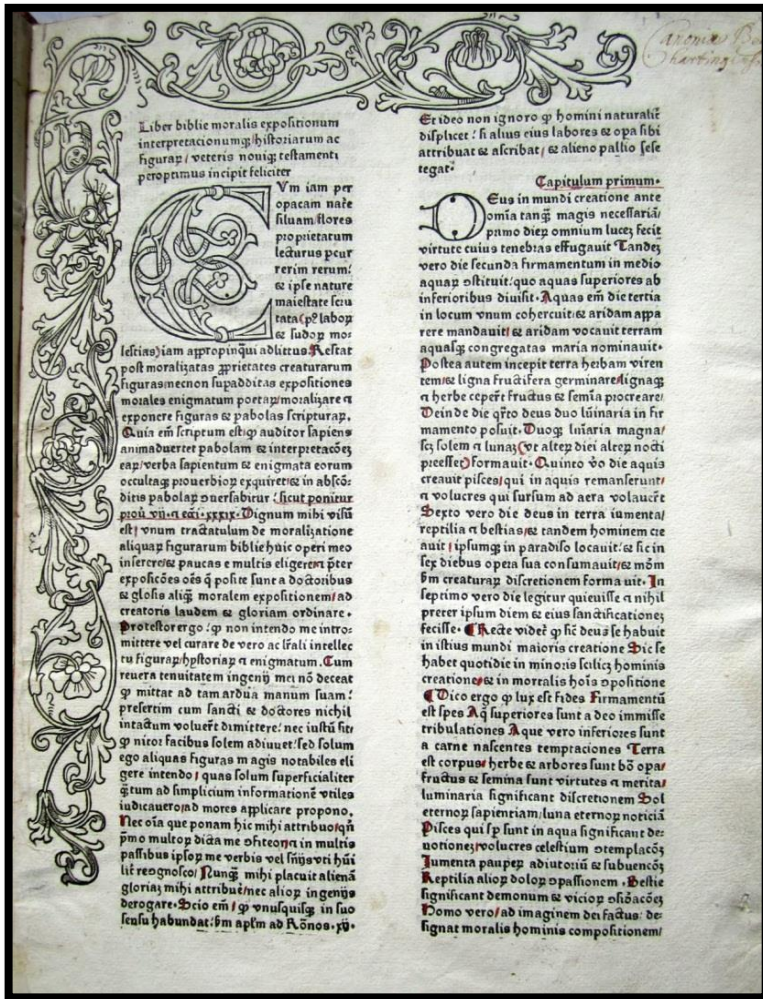 Liber biblie moralis expositionum
interpretacionumqꝫ/historiarum ac
figuraꝝ/ veteris nouiqꝫ testamenti
peroptimus incipit feliciter
CVm iam per
opacam naťe
siluam/flores
proprietatum
lecturus pcur
rerim rerum:
& ipse nature
maiestate scru
tata(p⁹ laboꝝ
& sudoꝝ mo-
lestias)iam appropinqui adlittus.Restat
post moralizatas ꝓprietates creaturarum
figuras/necnon supadditas expositiones
morales enigmatum poetaꝝ/moralizare ꝛ
exponere figuras & pabolas scripturaꝝ.
Quia em̄ scriptum est:ꝙ auditor sapiens
animaduertet pabolam & interpretacōeꝫ
eaꝝ/verba sapientum & enigmata eorum
occultaqꝫ prouerbioꝝ exquiret:& in abscō-
ditis pabolaꝝ ꝯuersabitur: sicut ponitur
Dignum mihi visū
est/ vnum tractatulum de moralizatione
aliquaꝝ figurarum biblie huic operi meo
inserere/& paucas e multis eligere:ꝛ p̄ter
expositōes oēs q̄ posite sunt a doctoribus
& glosis aliq̄ moralem expositionem/ad
creatoris laudem & gloriam ordinare.
Protestor ergo: ꝙ non intendo me intro-
mittere vel curare de vero ac lr̄ali intellec
tu figuraꝝ/hystoriaꝝ ꝛ enigmatum. Cum
reuera tenuitatem ingenij mei nō deceat
ꝙ mittat ad tam ardua manum suam:
presertim cum sancti & doctores nichil
intactum voluer̄t dimittere: nec iustū sit:
ꝙ nitor facibus solem adiuuet:sed solum
ego aliquas figuras magis notabiles eli
gere intendo/ quas solum superficialiter
q̄tum ad simplicium informationē vtiles
iudicauero/ad mores applicare propono.
Nec oīa que ponam hic mihi attribuo/qn̄
pmo multoꝝ dicta me ꝯfiteor/ꝛ in multis
passibus ipsoꝝ me verbis vel
Nunqꝫ mihi placuit alienā
gloriaꝫ mihi attribuē/nec alioꝝ ingenijs
derogare.Scio em̄/ ꝙ vnusquisqꝫ in suo
sensu habundat:ẜm apl̄m ad Rōnos.
Et ideo non ignoro ꝙ homini naturalit̄
displicet: si alius eius labores & opa sibi
attribuat & ascribat/ & alieno pallio sese
tegat.
Capitulum primum.
DEus in mundi creatione ante
omīa tanqꝫ magis necessariā/
pmo dieꝝ omnium luceꝫ fecit
virtute cuius tenebras effugauit Tandeꝫ
vero die secunda firmamentum in medio
aquaꝝ ꝯstituit:quo aquas superiores ab
inferioribus diuisit. Aquas em̄ die tertia
in locum vnum cohercuit:& aridam appa
rere mandauit/& aridam vocauit terram
aquasqꝫ congregatas maria nominauit.
Postea autem incepit terra herbam viren
tem/& ligna fructifera germinare/lignaqꝫ
ꝛ herbe ceper̄t fructus & semīa procreare/
Deinde die q̄rto deus duo lūinaria in fir
mamento posuit. Duoqꝫ lūiaria magna/
scꝫ solem ꝛ lunaꝫ(vt alteꝝ diei alteꝝ nocti
preesset)formauit. Quinto v̄o die aquis
creauit pisces/qui in aquis remanserunt/
ꝛ volucres qui sursum ad aera volauer̄t
Sexto vero die deus in terra iumenta/
reptilia ꝛ bestias/& tandem hominem cre
auit/ ipsumqꝫ in paradiso locauit:& sic in
sex diebus opera sua consumauit/& mōm
ẜm creaturaꝝ discretionem forma uit. In
septimo vero die legitur quieuisse ꝛ nihil
preter ipsum diem & eius sanctificationeꝫ
fecisse. ¶ Recte videt̄ ꝙ sic̄ deus se habuit
in istius mundi maioris creatione Sic se
habet quotidie in minoris scilicꝫ hominis
creatione/& in mortalis hoīs ꝯpositione
¶ Dico ergo ꝙ lux est fides Firmamentū
est spes Aq̄ superiores sunt a deo immisse
tribulationes Aque vero inferiores sunt
a carne nascentes temptaciones Terra
est corpus/ herbe & arbores sunt bōa opa/
fructus & semina sunt virtutes ꝛ merita/
luminaria significant discretionem Sol
eternoꝝ sapientiam/luna eternoꝝ noticiā
Pisces qui sp̄ sunt in aqua significant de-
uotioneꝫ/volucres celestium ꝯtemplacōꝫ
Iumenta paupeꝝ adiutoriū & subuencōꝫ
Reptilia alioꝝ doloꝝ ꝯpassionem .Bestie
significant demonum & vicioꝝ
Homo vero/ad imaginem dei factus: de-
signat moralis hominis compositionem/